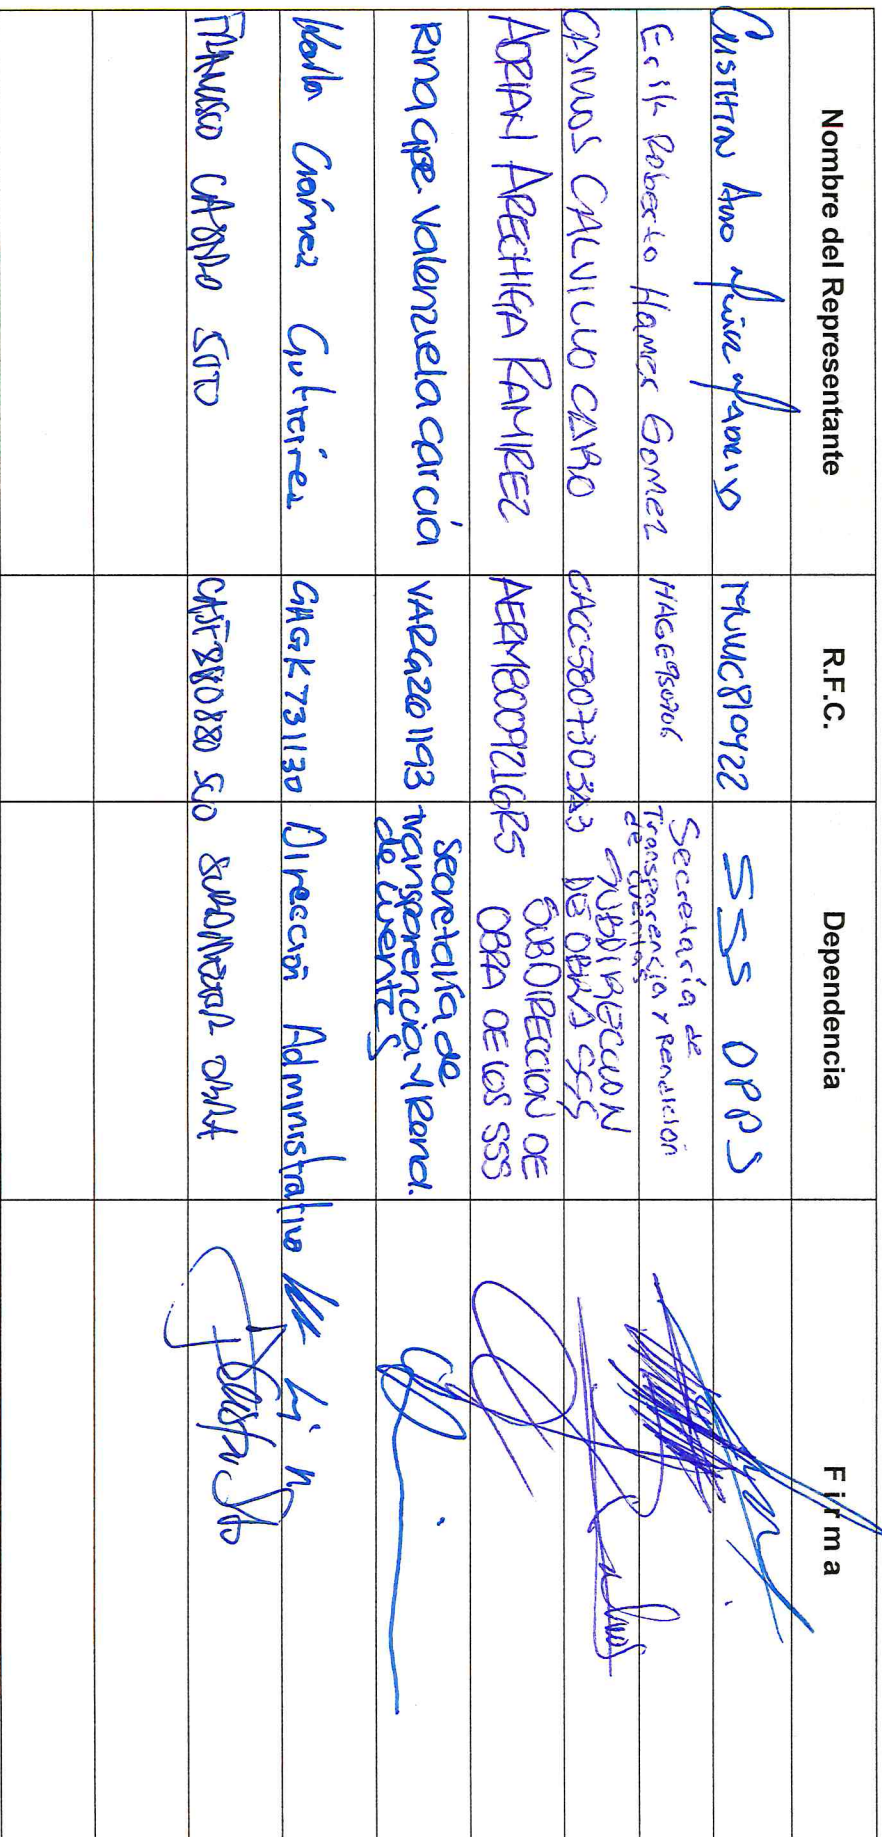 Nombre del Representante R.F.C. Dependencia Firma
MUMC810422 SSS OPPS
Erik Roberto Hamer Gomez HAGE950706 Secretaría de
Transparencia y Rendición
de cuentas
CARLOS CALVILLO CARO CACC5807303A3 SUBDIRECCION
DE OBRAS SSS
ADRIAN ARECHIGA RAMIREZ AERM8009216R5 SUBDIRECCION DE
OBRA DE LOS SSS
Rina Gpe. Valenzuela García VARG261193 Secretaría de
transparencia y Rend.
de Cuentas
Karla Gámez Gutierrez GAGK731130 Dirección Administrativa
FRANCISCO CASTRO SOTO SUBDIRECTOR OBRA